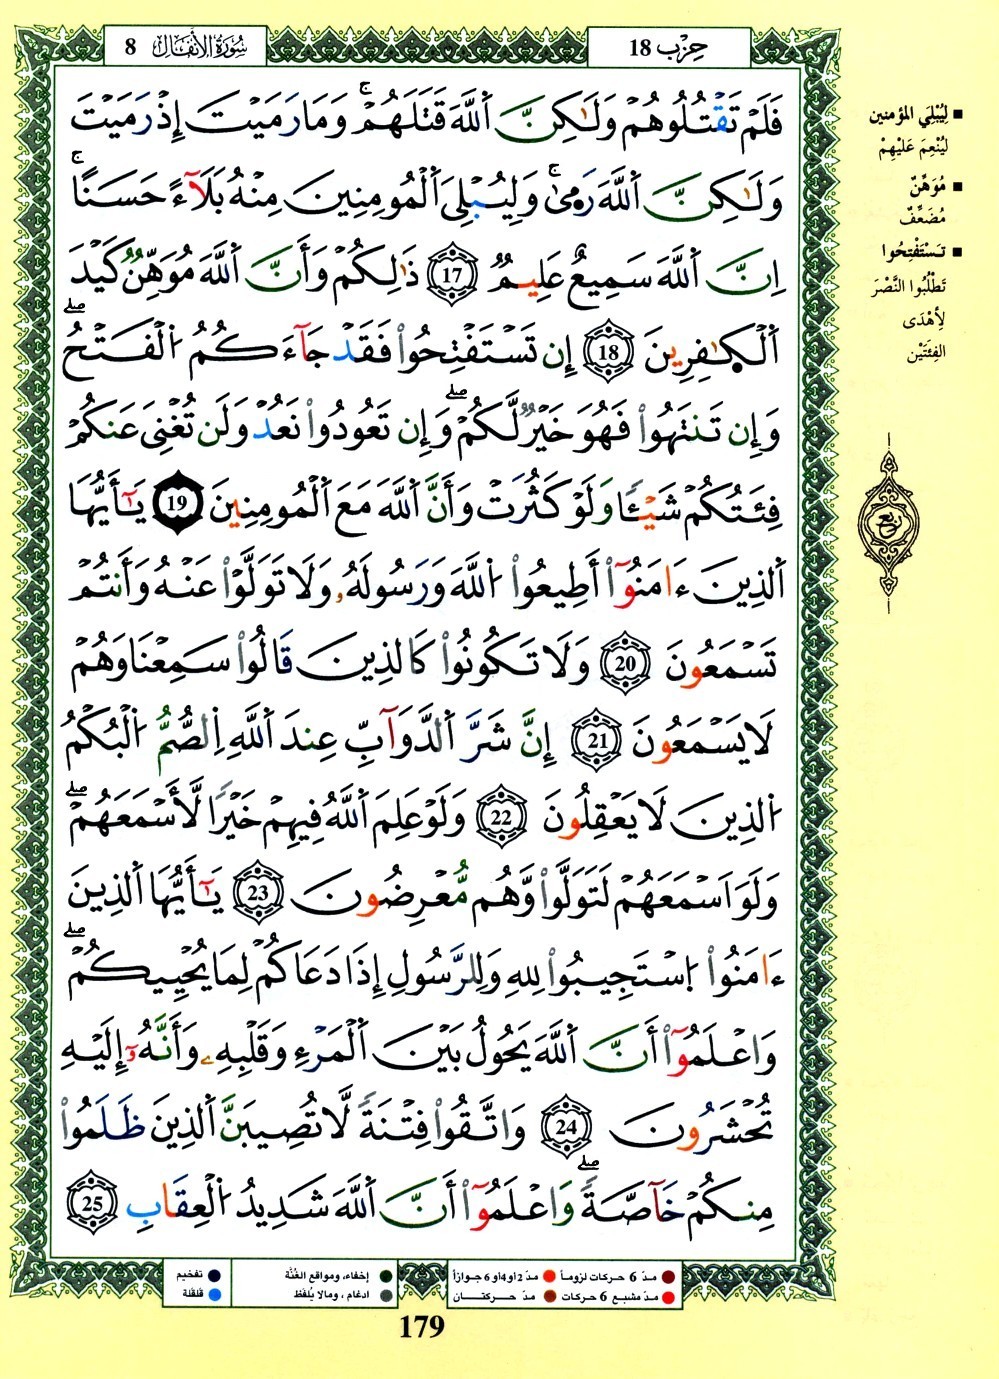 سُورَةُ الأَنفَال 8
حِزْب 18
فَلَمْ تَقْتُلُوهُمْ وَلَٰكِنَّ اَ۬للَّهَ قَتَلَهُمْۖ وَمَا رَمَيْتَ إِذْ رَمَيْتَ
وَلَٰكِنَّ اَ۬للَّهَ رَم۪ىٰۖ وَلِيُبْلِيَ اَ۬لْمُومِنِينَ مِنْهُ بَلَآءً حَسَناًۖ
اِنَّ اَ۬للَّهَ سَمِيعٌ عَلِيمٌ 17 ذَٰلِكُمْ وَأَنَّ اَ۬للَّهَ مُوَهِّنٌ كَيْدَ
اَ۬لْكٰ۪فِرِينَ 18 إِن تَسْتَفْتِحُواْ فَقَدْ جَآءَكُمُ اُ۬لْفَتْحُۖ
وَإِن تَنتَهُواْ فَهُوَ خَيْرٌ لَّكُمْۖ وَإِن تَعُودُواْ نَعُدْ وَلَن تُغْنِيَ عَنكُمْ
فِئَتُكُمْ شَيْـٔاً وَلَوْ كَثُرَتْ وَأَنَّ اَ۬للَّهَ مَعَ اَ۬لْمُومِنِينَ 19 يَٰٓأَيُّهَا
اَ۬لذِينَ ءَامَنُوٓاْ أَطِيعُواْ اُ۬للَّهَ وَرَسُولَهُۥ وَلَا تَوَلَّوْاْ عَنْهُ وَأَنتُمْ
تَسْمَعُونَ 20 وَلَا تَكُونُواْ كَالذِينَ قَالُواْ سَمِعْنَا وَهُمْ
لَا يَسْمَعُونَ 21 إِنَّ شَرَّ اَ۬لدَّوَآبِّ عِندَ اَ۬للَّهِ اِ۬لصُّمُّ اُ۬لْبُكْمُ
اُ۬لذِينَ لَا يَعْقِلُونَ 22 وَلَوْ عَلِمَ اَ۬للَّهُ فِيهِمْ خَيْراً لَّأَسْمَعَهُمْۖ
وَلَوَ اَسْمَعَهُمْ لَتَوَلَّواْ وَّهُم مُّعْرِضُونَ 23 يَٰٓأَيُّهَا اَ۬لذِينَ
ءَامَنُواْ اُ۪سْتَجِيبُواْ لِلهِ وَلِلرَّسُولِ إِذَا دَعَاكُمْ لِمَا يُحْيِيكُمْۖ
وَاعْلَمُوٓاْ أَنَّ اَ۬للَّهَ يَحُولُ بَيْنَ اَ۬لْمَرْءِ وَقَلْبِهِۦ وَأَنَّهُۥٓ إِلَيْهِ
تُحْشَرُونَ 24 وَاتَّقُواْ فِتْنَةً لَّا تُصِيبَنَّ اَ۬لذِينَ ظَلَمُواْ
مِنكُمْ خَآصَّةًۖ وَاعْلَمُوٓاْ أَنَّ اَ۬للَّهَ شَدِيدُ اُ۬لْعِقَابِ 25
■ لِيُبْلِيَ المؤمنين
لِيُنْعِمَ عَلَيْهِمْ
■ مُوَهِّنٌ
مُضَعِّفٌ
■ تَسْتَفْتِحُوا
تَطْلُبُوا النَّصْرَ
لِأَهْدَى
الفِئَتَيْن
ربع
● مدّ 6 حركات لزوماً ● مدّ 2 أو 4 أو 6 جوازاً
● مدّ مشبع 6 حركات ● مدّ حركتان
● إخفاء، ومواقع الغُنَّة
● ادغام ، ومالا يُلفَظ
● تفخيم
● قلقلة
179